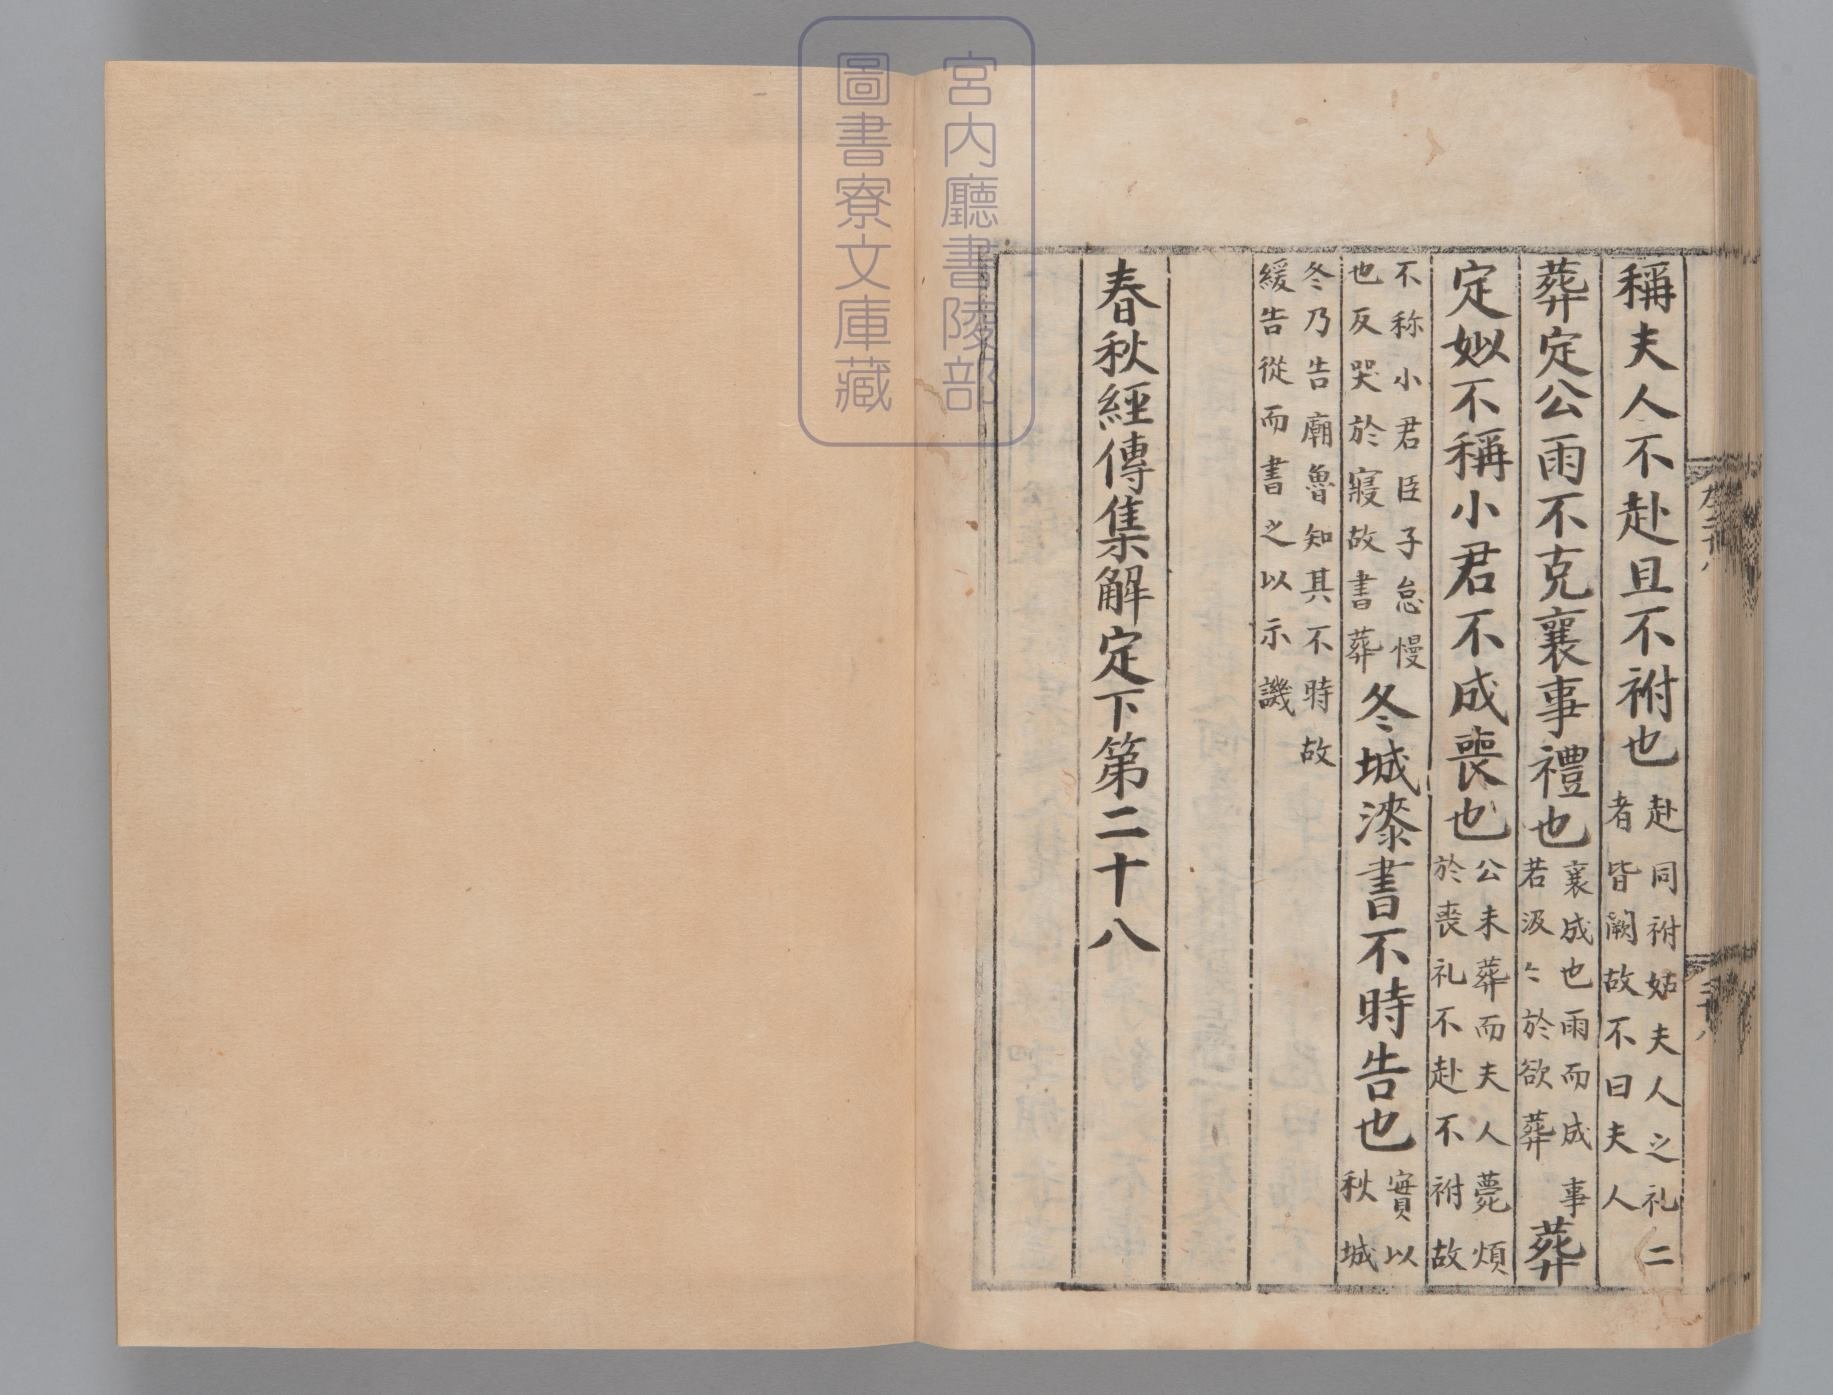 稱夫人不赴且不祔也赴同祔姑夫人之礼二者皆闕故不曰夫人
葬定公雨不克襄事禮也襄成也雨而成事若汲〻於欲葬葬
定姒不稱小君不成喪也公未葬而夫人薨煩於喪礼不赴不祔故
不称小君臣子怠慢也反哭於寢故書葬冬城漆書不時告也實以秋城
冬乃告廟魯知其不時故緩告從而書之以示譏
春秋經傳集解定下第二十八
宮内廳書陵部
圖書寮文庫藏